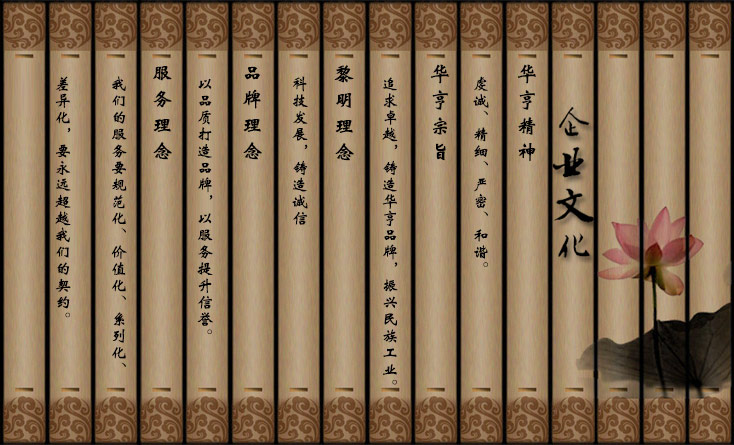 企业文化
华亨精神
虔诚、精细、严密、和谐。
华亨宗旨
追求卓越，铸造华亨品牌，振兴民族工业。
黎明理念
科技发展，铸造诚信
品牌理念
以品质打造品牌，以服务提升信誉。
服务理念
我们的服务要规范化、价值化、系列化、
差异化，要永远超越我们的契约。